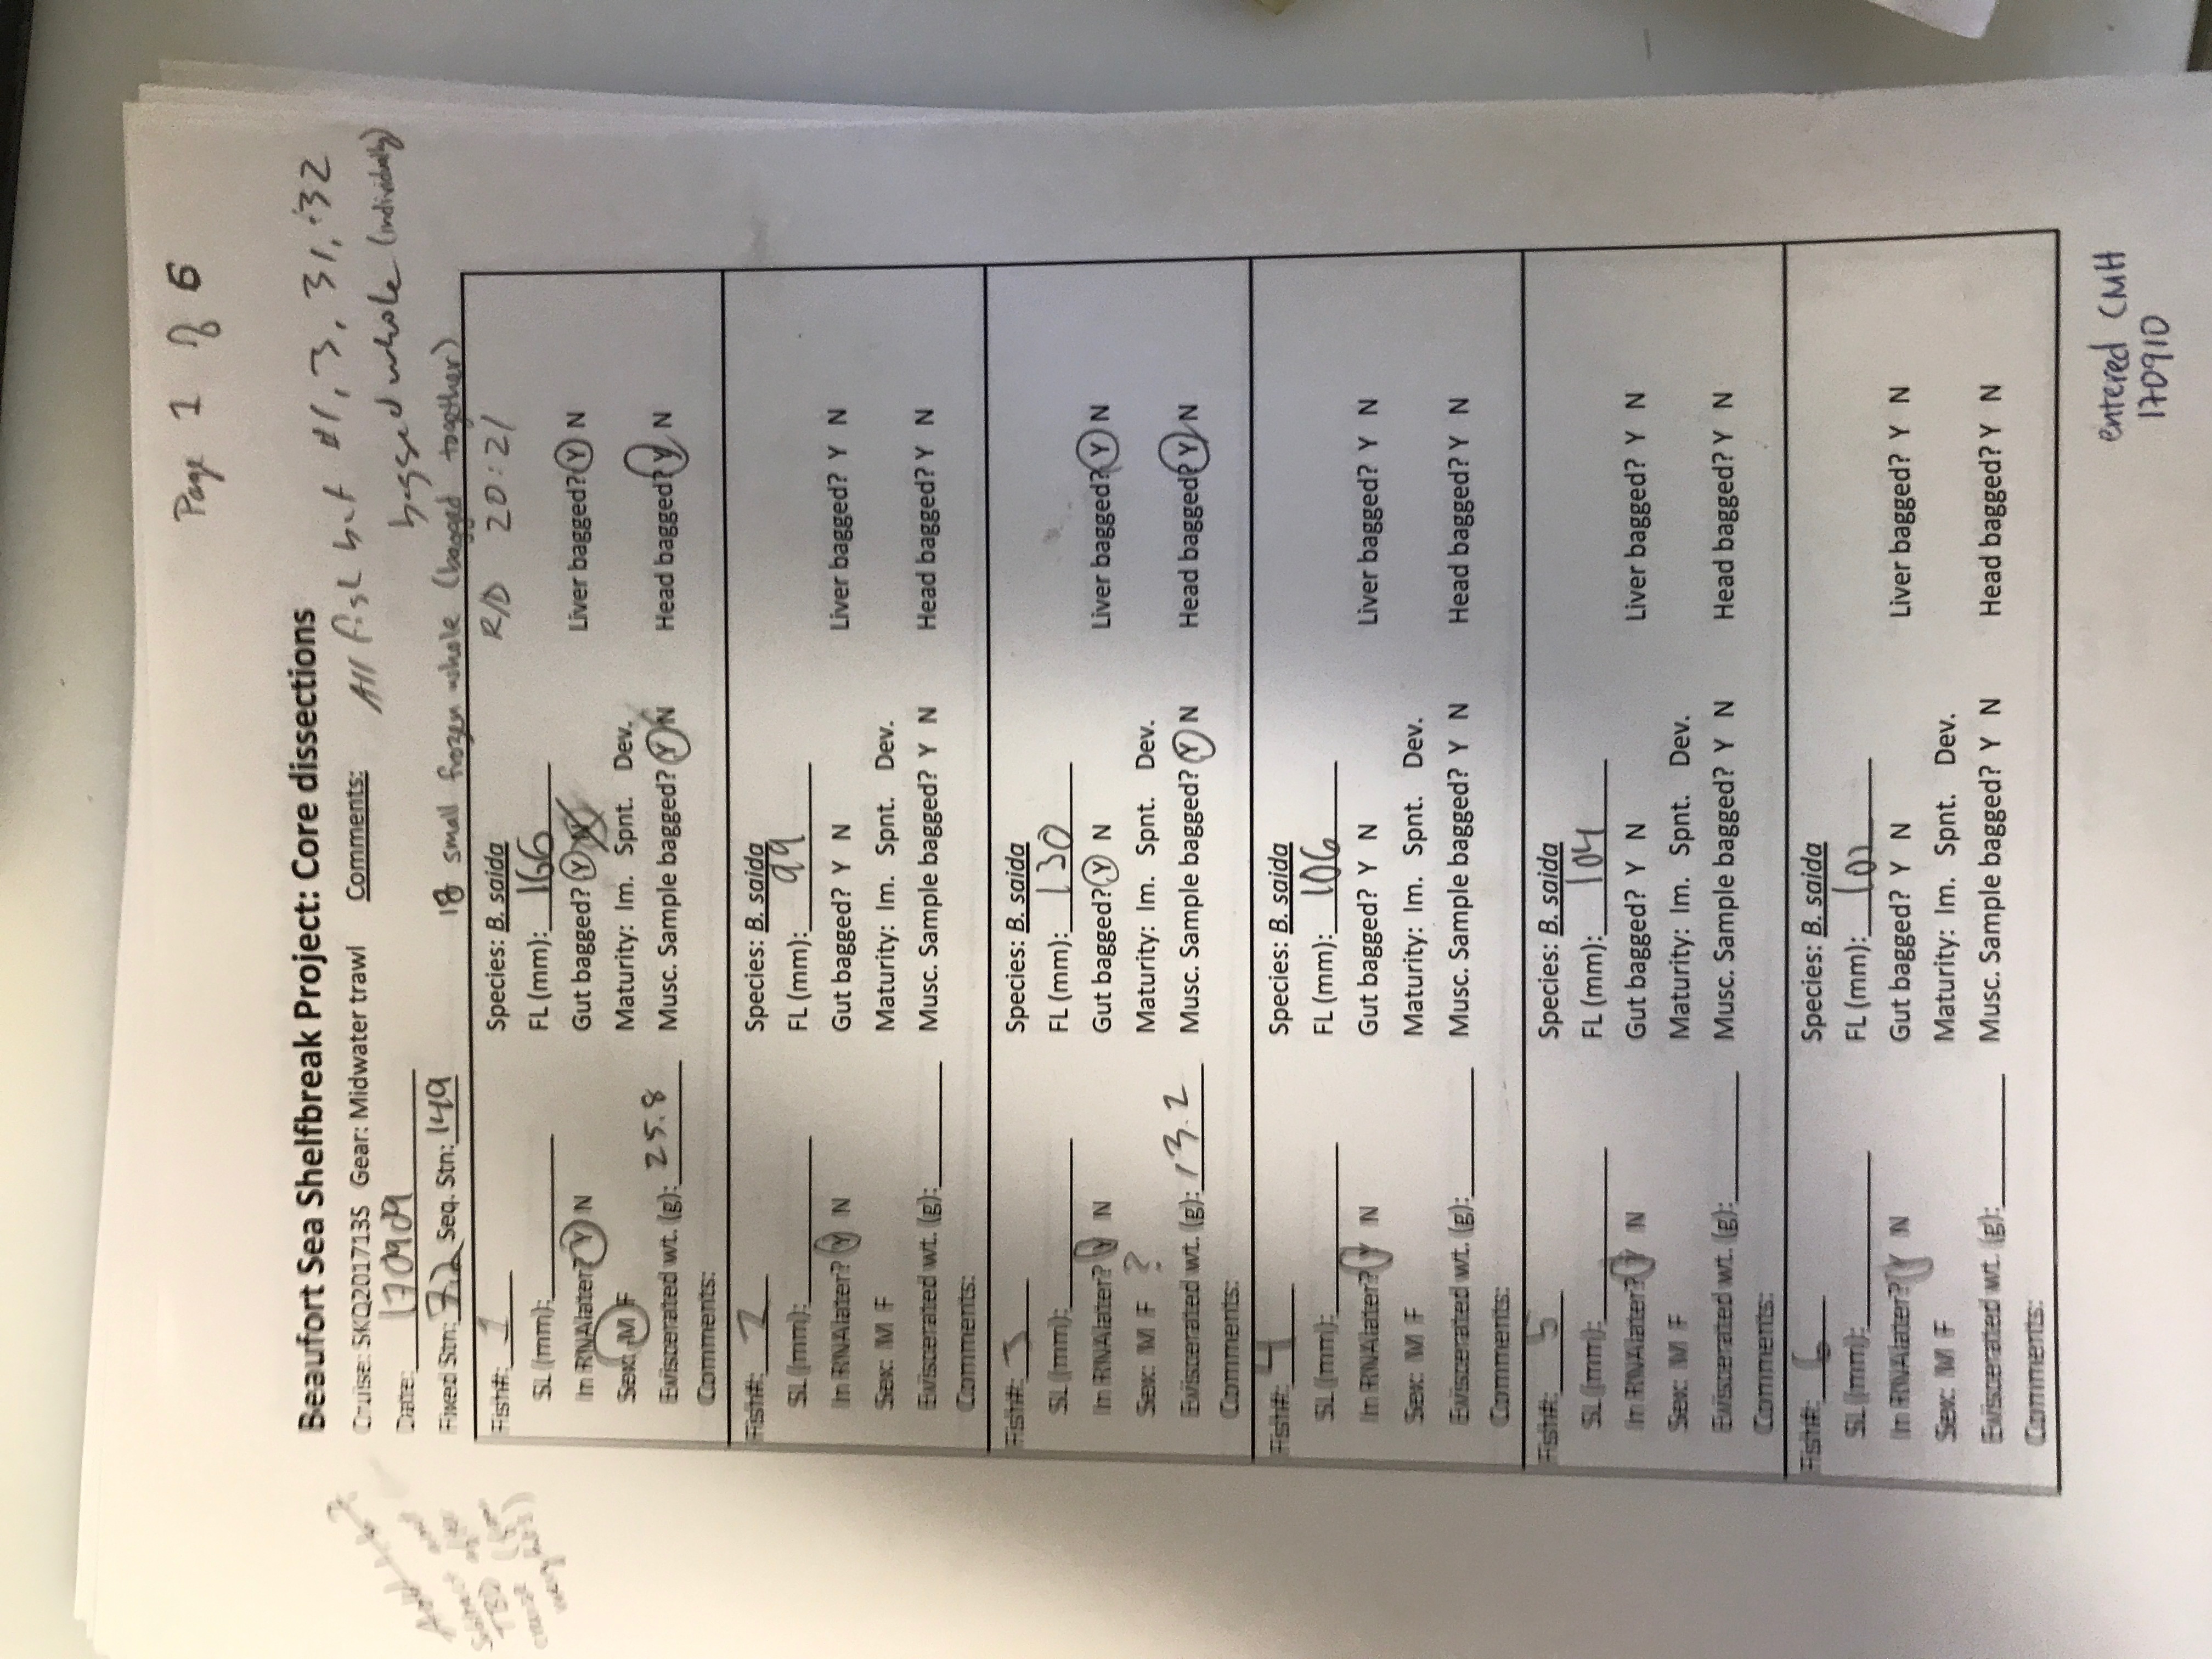 Page 1 of 6
Beaufort Sea Shelfbreak Project: Core dissections
Cruise: SKQ201713S Gear: Midwater trawl Comments: All fish but #1, 3, 31, 32
bagged whole (individually)
Date: 170909
Fixed Stn: 7.2 Seq. Stn: 149 18 small frozen whole (bagged together)
Fish#: 1 Species: B. saida R/D 20:21
SL (mm): FL (mm): 166
In RNAlater? Y N Gut bagged? Y N Liver bagged? Y N
Sex: M F Maturity: Im. Spnt. Dev.
Eviscerated wt. (g): 25.8 Musc. Sample bagged? Y N Head bagged? Y N
Comments:
Fish#: 2 Species: B. saida
SL (mm): FL (mm): 99
In RNAlater? Y N Gut bagged? Y N Liver bagged? Y N
Sex: M F Maturity: Im. Spnt. Dev.
Eviscerated wt. (g): Musc. Sample bagged? Y N Head bagged? Y N
Comments:
Fish#: 3 Species: B. saida
SL (mm): FL (mm): 130
In RNAlater? Y N Gut bagged? Y N Liver bagged? Y N
Sex: M F ? Maturity: Im. Spnt. Dev.
Eviscerated wt. (g): 13.2 Musc. Sample bagged? Y N Head bagged? Y N
Comments:
Fish#: 4 Species: B. saida
SL (mm): FL (mm): 106
In RNAlater? Y N Gut bagged? Y N Liver bagged? Y N
Sex: M F Maturity: Im. Spnt. Dev.
Eviscerated wt. (g): Musc. Sample bagged? Y N Head bagged? Y N
Comments:
Fish#: 5 Species: B. saida
SL (mm): FL (mm): 104
In RNAlater? Y N Gut bagged? Y N Liver bagged? Y N
Sex: M F Maturity: Im. Spnt. Dev.
Eviscerated wt. (g): Musc. Sample bagged? Y N Head bagged? Y N
Comments:
Fish#: 6 Species: B. saida
SL (mm): FL (mm): 102
In RNAlater? Y N Gut bagged? Y N Liver bagged? Y N
Sex: M F Maturity: Im. Spnt. Dev.
Eviscerated wt. (g): Musc. Sample bagged? Y N Head bagged? Y N
Comments:
entered CMH
170910